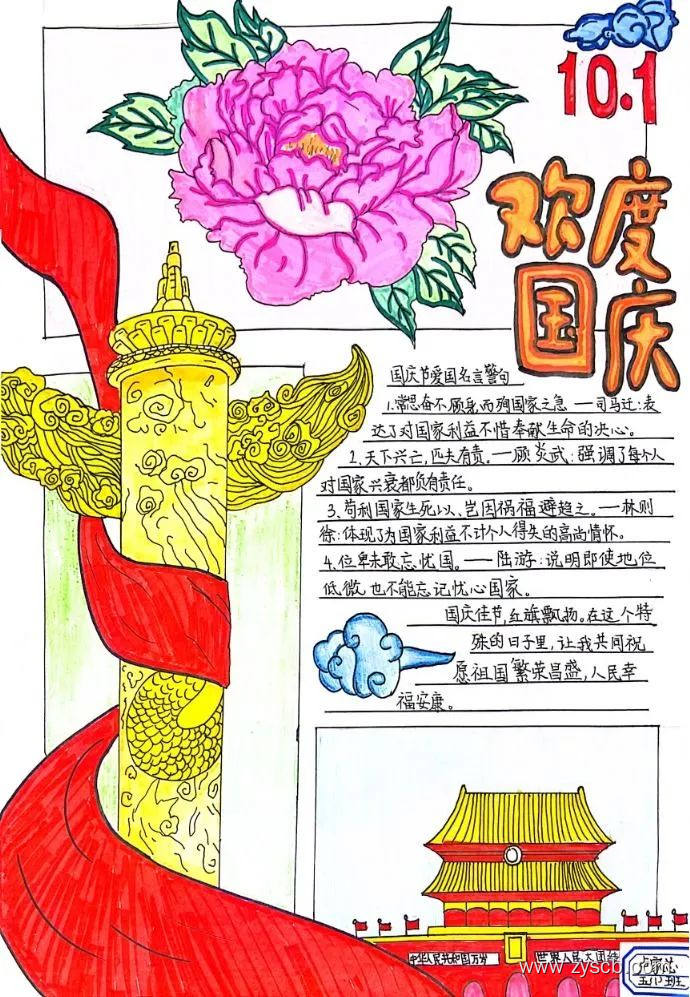 10.1
欢度
国庆
国庆节爱国名言警句
1.常思奋不顾身,而殉国家之急——司马迁:表
达了对国家利益不惜奉献生命的决心。
2.天下兴亡,匹夫有责。——顾炎武:强调了每个人
对国家兴衰都负有责任。
3.苟利国家生死以、岂因祸福避趋之。——林则
徐:体现了为国家利益不计个人得失的高尚情怀。
4.位卑未敢忘忧国。——陆游:说明即使地位
低微,也不能忘记忧心国家。
国庆佳节,红旗飘扬。在这个特
殊的日子里,让我共同祝
愿祖国繁荣昌盛,人民幸
福安康。
中华人民共和国万岁
世界人民大团结